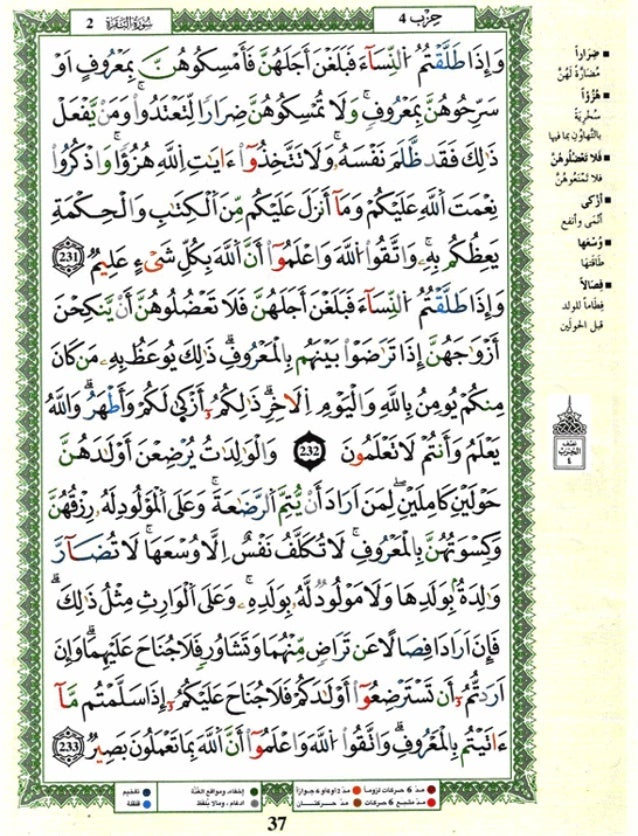 حزب 4
سورة البقرة 2
وَإِذَا طَلَّقْتُمُ النِّسَآءَ فَبَلَغْنَ أَجَلَهُنَّ فَأَمْسِكُوهُنَّ بِمَعْرُوفٍ اَوْ
سَرِّحُوهُنَّ بِمَعْرُوفٍ وَلَا تُمْسِكُوهُنَّ ضِرَارًا لِّتَعْتَدُوا وَمَنْ يَّفْعَلْ
ذَٰلِكَ فَقَد ظَّلَمَ نَفْسَهُۥ وَلَا تَتَّخِذُوٓا ءَايَٰتِ اِللَّهِ هُزُؤًا وَاذْكُرُوا
نِعْمَتَ اَللَّهِ عَلَيْكُمْ وَمَآ أَنزَلَ عَلَيْكُم مِّنَ اَلْكِتَٰبِ وَالْحِكْمَةِ
يَعِظُكُم بِهِۦ وَاتَّقُوا اُللَّهَ وَاعْلَمُوٓا أَنَّ اَللَّهَ بِكُلِّ شَيْءٍ عَلِيمٌ 231
وَإِذَا طَلَّقْتُمُ النِّسَآءَ فَبَلَغْنَ أَجَلَهُنَّ فَلَا تَعْضُلُوهُنَّ أَنْ يَّنكِحْنَ
أَزْوَٰجَهُنَّ إِذَا تَرَٰضَوْا بَيْنَهُم بِالْمَعْرُوفِ ذَٰلِكَ يُوعَظُ بِهِۦ مَن كَانَ
مِنكُمْ يُومِنُ بِاللَّهِ وَالْيَوْمِ اِلَاخِرِ ذَٰلِكُمُۥٓ أَزْكَىٰ لَكُمْ وَأَطْهَرُ وَاللَّهُ
يَعْلَمُ وَأَنتُمْ لَا تَعْلَمُونَ 232 وَالْوَٰلِدَٰتُ يُرْضِعْنَ أَوْلَٰدَهُنَّ
حَوْلَيْنِ كَامِلَيْنِ لِمَنَ اَرَادَ أَنْ يُّتِمَّ اَلرَّضَٰعَةَ وَعَلَى اَلْمَوْلُودِ لَهُۥ رِزْقُهُنَّ
وَكِسْوَتُهُنَّ بِالْمَعْرُوفِ لَا تُكَلَّفُ نَفْسٌ اِلَّا وُسْعَهَا لَا تُضَآرَّ
وَٰلِدَةٌۢ بِوَلَدِهَا وَلَا مَوْلُودٌ لَّهُۥ بِوَلَدِهِۦ وَعَلَى اَلْوَارِثِ مِثْلُ ذَٰلِكَ
فَإِنَ اَرَادَا فِصَالًا عَن تَرَاضٍ مِّنْهُمَا وَتَشَاوُرٍ فَلَا جُنَاحَ عَلَيْهِمَا وَإِنَ
اَرَدتُّمُۥٓ أَن تَسْتَرْضِعُوٓا أَوْلَٰدَكُمْ فَلَا جُنَاحَ عَلَيْكُمُۥٓ إِذَا سَلَّمْتُم مَّآ
ءَاتَيْتُم بِالْمَعْرُوفِ وَاتَّقُوا اُللَّهَ وَاعْلَمُوٓا أَنَّ اَللَّهَ بِمَا تَعْمَلُونَ بَصِيرٌ 233
ضِرَاراً
مُضَارَّةً لَهُنَّ
هُزُؤاً
سُخْرِيَةً
بالتَّهاوُنِ بما فيها
فَلَا تَعْضُلُوهُنَّ
فَلا تَمْنَعُوهُنَّ
أَزْكى
أَنْمَى وأنفع
وُسْعَها
طَاقَتَها
فِصَالاً
فِطَاماً للولد
قبل الحولَين
نصف
الحزب
٤
مدّ 6 حركات لزوماً
مدّ 2 أو 4 أو 6 جوازاً
إخفاء، ومواقع الغُنَّة
تفخيم
مدّ مشبع 6 حركات
مدّ حركتان
ادغام، ومالا يُلفظ
قلقلة
37